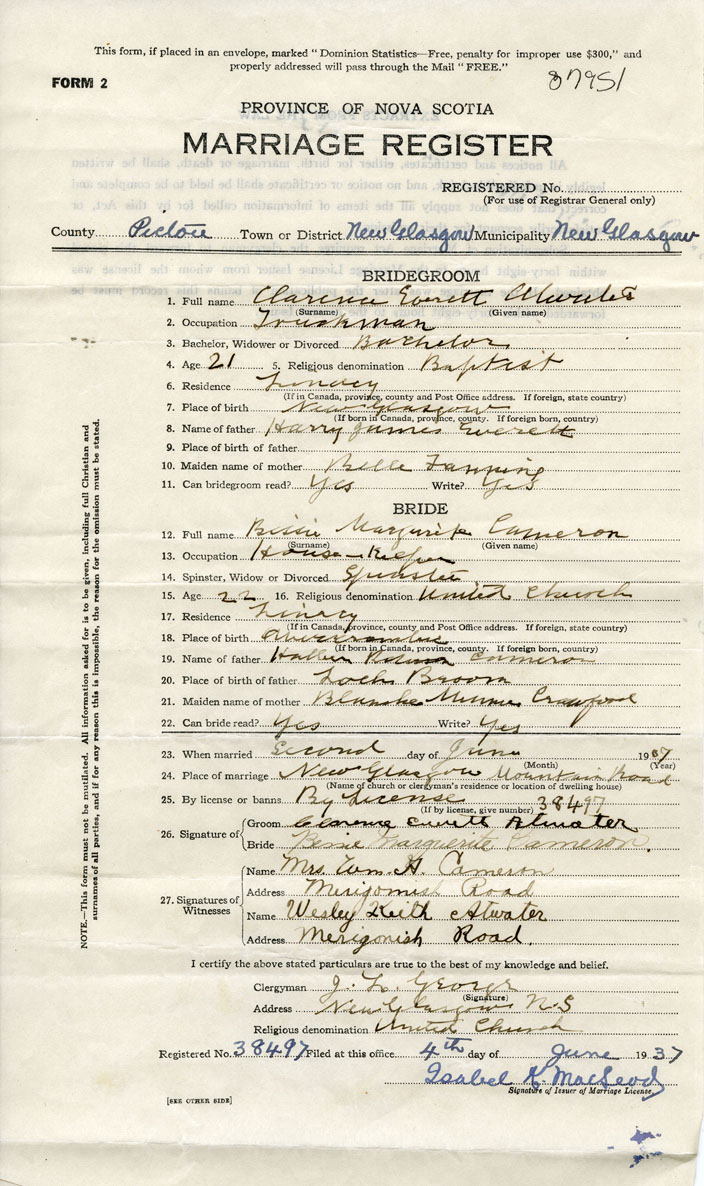 This form, if placed in an envelope, marked "Dominion Statistics—Free, penalty for improper use $300," and
properly addressed will pass through the Mail "FREE."
FORM 2
87951
PROVINCE OF NOVA SCOTIA
MARRIAGE REGISTER
REGISTERED No.
(For use of Registrar General only)
County Pictou Town or District New Glasgow Municipality New Glasgow
BRIDEGROOM
1. Full name Clarence Everett Atwater
(Surname) (Given name)
2. Occupation Truckman
3. Bachelor, Widower or Divorced Bachelor
4. Age 21 5. Religious denomination Baptist
6. Residence
(If in Canada, province, county and Post Office address. If foreign, state country)
7. Place of birth New Glasgow
(If born in Canada, province, county. If foreign born, country)
8. Name of father Harry James Everett
9. Place of birth of father
10. Maiden name of mother Belle Fanning
11. Can bridegroom read? Yes Write? Yes
BRIDE
12. Full name Bessie Margurite Cameron
(Surname) (Given name)
13. Occupation House-Keeper
14. Spinster, Widow or Divorced Spinster
15. Age 22 16. Religious denomination United Church
17. Residence
(If in Canada, province, county and Post Office address. If foreign, state country)
18. Place of birth Abercrombie
(If born in Canada, province, county. If foreign born, country)
19. Name of father Cameron
20. Place of birth of father Loch Broom
21. Maiden name of mother Blanche Minnie Crawford
22. Can bride read? Yes Write? Yes
23. When married Second day of June 1937
(Month) (Year)
24. Place of marriage New Glasgow Mountain Road
(Name of church or clergyman's residence or location of dwelling house)
25. By license or banns By License
(If by license, give number) 38497
26. Signature of Groom Clarence Everett Atwater
Bride Bessie Marguerite Cameron.
27. Signatures of Witnesses
Name Mrs. Wm. H. Cameron
Address Merigomish Road
Name Wesley Keith Atwater
Address Merigonish Road.
I certify the above stated particulars are true to the best of my knowledge and belief.
Clergyman J. L. George
(Signature)
Address New Glasgow N.S
Religious denomination United Church
Registered No. 38497 Filed at this office 4th day of June 1937
Isabel K. MacLeod
Signature of Issuer of Marriage License.
[SEE OTHER SIDE]
NOTE.—This form must not be mutilated. All information asked for is to be given, including full Christian and
surnames of all parties, and if for any reason this is impossible, the reason for the omission must be stated.